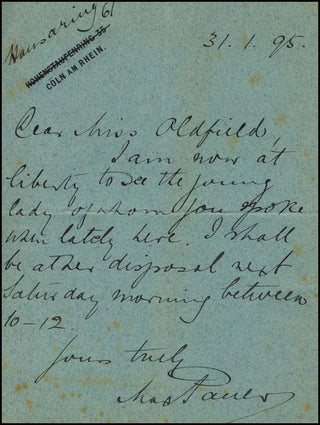 Hansaring 61
HOHENSTAUFENRING 35
CÖLN AM RHEIN.
31.1.95.
Dear Miss Oldfield,
I am now at
liberty to see the young
lady of whom you spoke
when lately here. I shall
be at her disposal next
Saturday morning between
10-12.
Yours truly
Max Pauer